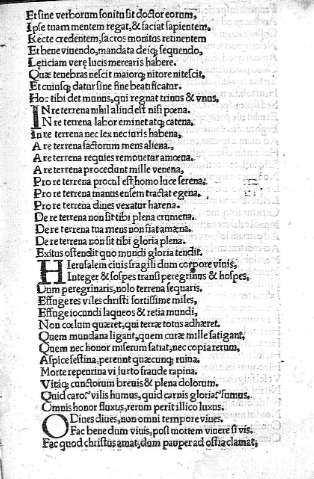 Et sine verborum sonitu sit doctor eorum,
Ipse tuam mentem regat, & faciat sapientem.
Recte credentem, sacros monitus retinentem
Et bene viuendo, mandata deiq; sequendo,
Leticiam verę lucis merearis habere.
Quæ tenebras nescit maiorq; nitore nitescit,
Et cuiusq; datur sine fine beatificatur.
Hoc tibi det munus, qui regnat trinus & vnus,
IN re terrena nihil aliud est nisi pœna.
IN re terrena labor eminet atq; catena.
In re terrena nec lex nec iuris habena,
A re terrena factorum mens aliena.
A re terrena requies remouetur amœna.
A re terrena procedunt mille venena,
Pro re terrena procul est homo luce serena.
Pro re terrena manus ensem tractat egena.
Pro re terrena diues vexatur harena.
De re terrena non sit tibi plena crumena.
De re terrena tua mens non sit
De re terrena non sit tibi gloria plena.
Exitus ostendit quo mundi gloria tendit.
HIerusalem ciuis fragili dum corpore viuis,
Integer & sospes transi peregrinus & hospes,
Dum peregrinaris, nolo terrena sequaris.
Effugeres viles christi fortissime miles,
Effuge iocundi laqueos & retia mundi,
Non cœlum quæret, qui terræ totus adhæret.
Quem mundana ligant, quem curæ mille fatigant,
Quem nec honor miserum satiat, nec copia rerum,
Aspice festina, pereunt quæcunq; ruina.
Morte repentina vi furto fraude rapina.
Vitaq; cunctorum breuis & plena dolorum.
Quid caro? vilis humus, quid carnis gloria? fumus.
Omnis honor fluxus, rerum perit illico luxus.
O Diues diues, non omni tempore viues.
Fac bene dum viuis, post mortem viuere si vis.
Fac quod christus amat, dum pauper ad ostia clamat,